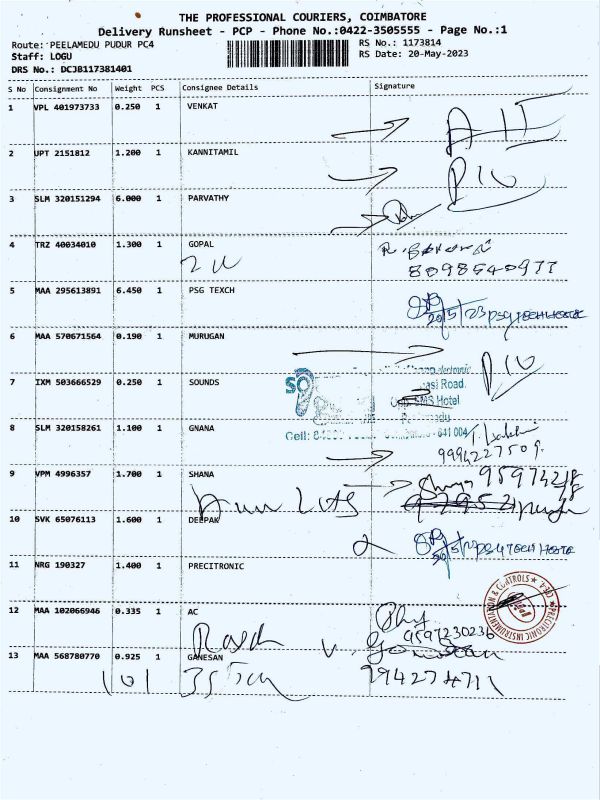 THE PROFESSIONAL COURIERS, COIMBATORE
Delivery Runsheet - PCP - Phone No.:0422-3505555 - Page No.:1
Route: PEELAMEDU PUDUR PC4 RS No.: 1173814
Staff: LOGU RS Date: 20-May-2023
DRS No.: DCJB117381401
S No Consignment No Weight PCS Consignee Details Signature
1 VPL 401973733 0.250 1 VENKAT
2 UPT 2151812 1.200 1 KANNITAMIL
3 SLM 320151294 6.000 1 PARVATHY
4 TRZ 40034010 1.300 1 GOPAL
8098540977
5 MAA 295613891 6.450 1 PSG TEXCH
20/5/23 PSG TECH HOSTEL
6 MAA 570671564 0.190 1 MURUGAN
7 IXM 503666529 0.250 1 SOUNDS
Road.
Opp. SMS Hotel
8 SLM 320158261 1.100 1 GNANA
Cell: 641 004
9 VPM 4996357 1.700 1 SHANA
10 SVK 65076113 1.600 1 DEEPAK
PSG TECH HOSTEL
11 NRG 190327 1.400 1 PRECITRONIC
PRECITRONIC INSTRUMENTATION & CONTROLS
12 MAA 102066946 0.335 1 AC
9597230236
13 MAA 568780770 0.925 1 GANESAN
9942774711